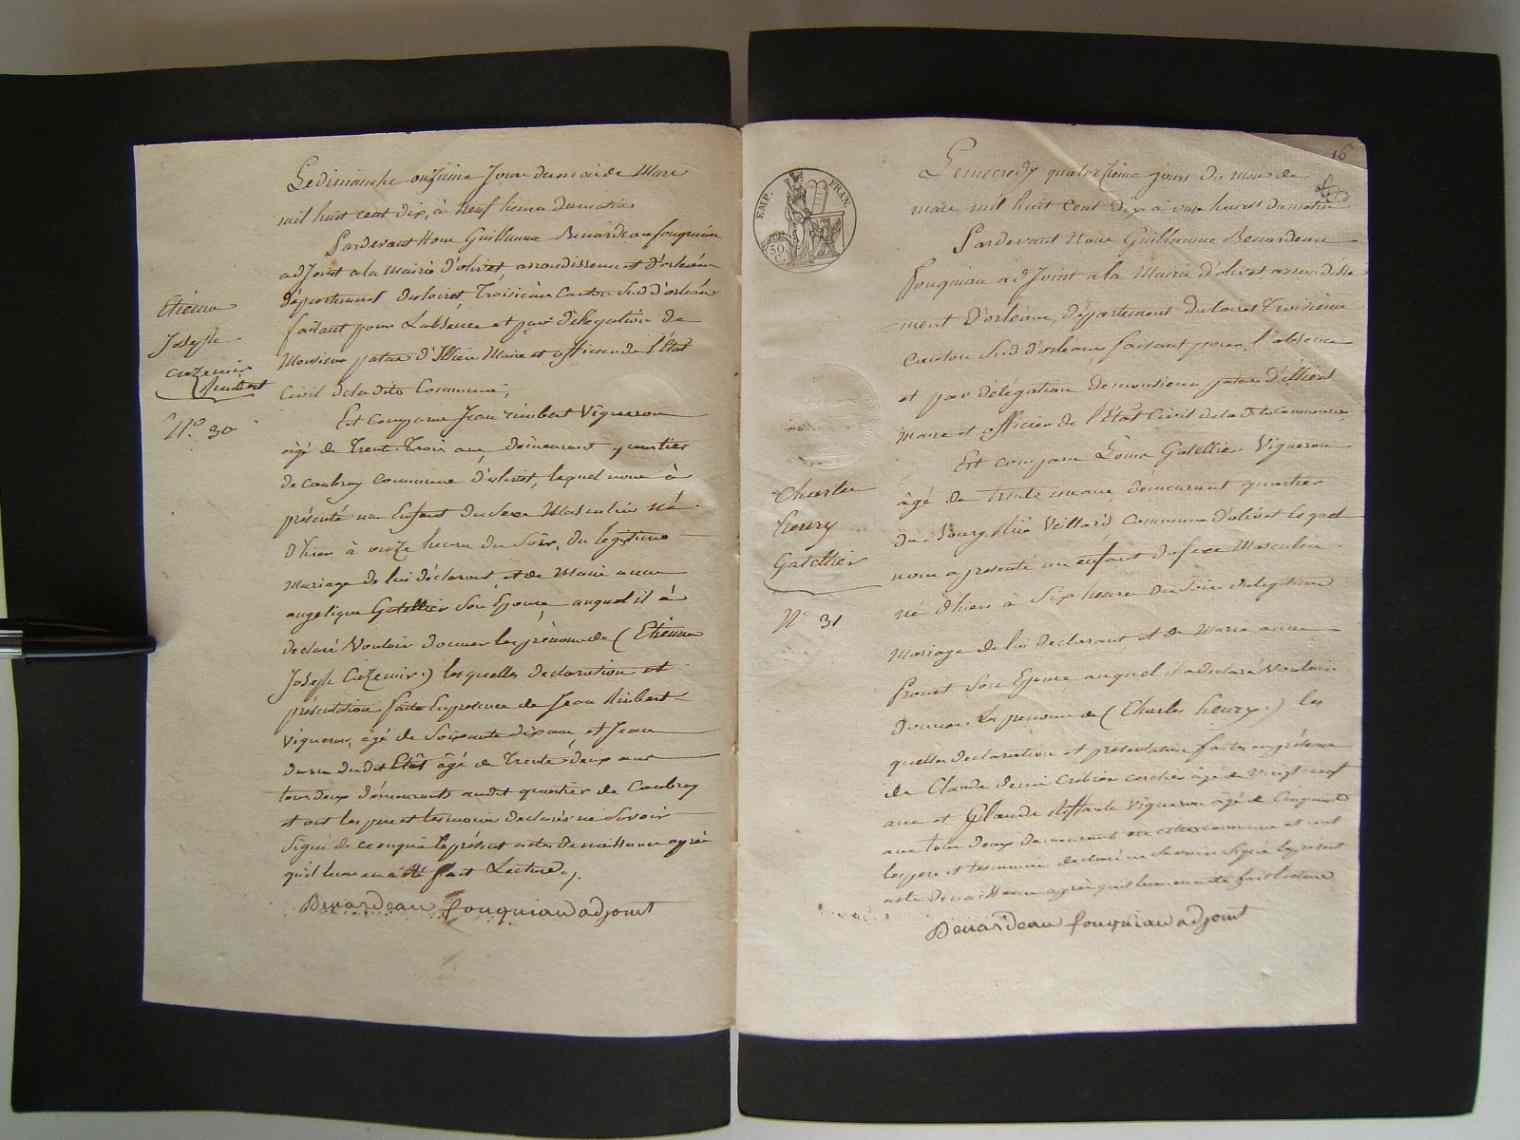 Le dimanche onzieme Jour du mois de Mars
mil huit cent dix, à neuf heures du matin
Pardevant Nous Guillaume Benardeau fouqueau
adjoint a la Mairie d'olivet arrondissement d'orleans
département du Loiret Troisieme Canton Sud d'orleans
faisant pour L'absence et par délégation de
Monsieur patas d'Illiers Maire et officier de l'état
Civil de ladite Commune,
Est comparu Jean rimbert Vigneron
âgé de Trente Trois ans, demeurant quartier
de Caubray Commune d'olivet, lequel nous à
présenté un Enfant du Sexe Masculin né
d'hier à onze heures du Soir, du légitime
Mariage de lui déclarant, et de Marie anne
angelique Gatellier Son Epouse auquel il à
declaré Vouloir donner les prénoms de (Etienne
Joseph Cazemir.) lesquelles declaration et
présentation faite En presence de Jean Rimbert
Vigneron, âgé de Soixante dix ans, et Jean
dudit Etat âgé de Trente deux ans
tous deux demeurants audit quartier de Caubray
et ont les pere et temoins declarés ne Savoir
Signé de ce enquis le présent acte de naissance après
qu'il leur en a été fait Lecture,.
Benardeau fouqueau adjoint
Etienne
Joseph
cazemir
Rimbert
N.° 30
16
EMP. FRAN.
50 C.
Le mecredy quatorzieme jour du mois de
mars mil huit cent dix à onze heures du matin
Pardevant Nous Guillaume Benardeau
fouqueau adjoint a la Mairie d'olivet arrondisse
-ment d'orléans, département du Loiret Troisieme
Canton Sud d'orleans faisant pour l'absence
et par délégation de monsieur patas d'illiers
Maire et officier de l'état Civil de ladite Commune
Est comparu Louis Gatellier Vigneron
âgé de Trente demeurant quartier
du Bourg Commune d'olivet lequel
nous a présenté un enfant du sexe Masculin
né d'hier à Six heures du Soir du légitime
Mariage de lui declarant et de Marie anne
Prouet Son Epouse auquel il a declaré Vouloir
Donner les prenoms de (Charles henry.) les
quelles declaration et présentation faites en présence
de Claude âgé de Vingt neuf
ans et Claude Vigneron âgé de Cinquante
ans tous deux demeurants en cette commune et ont
les pere et temoins declaré ne Savoir Signé le present
acte de naissance après qu'il leur en a été fait lecture
Benardeau fouqueau adjoint
Charles
henry
Gatellier
N.° 31